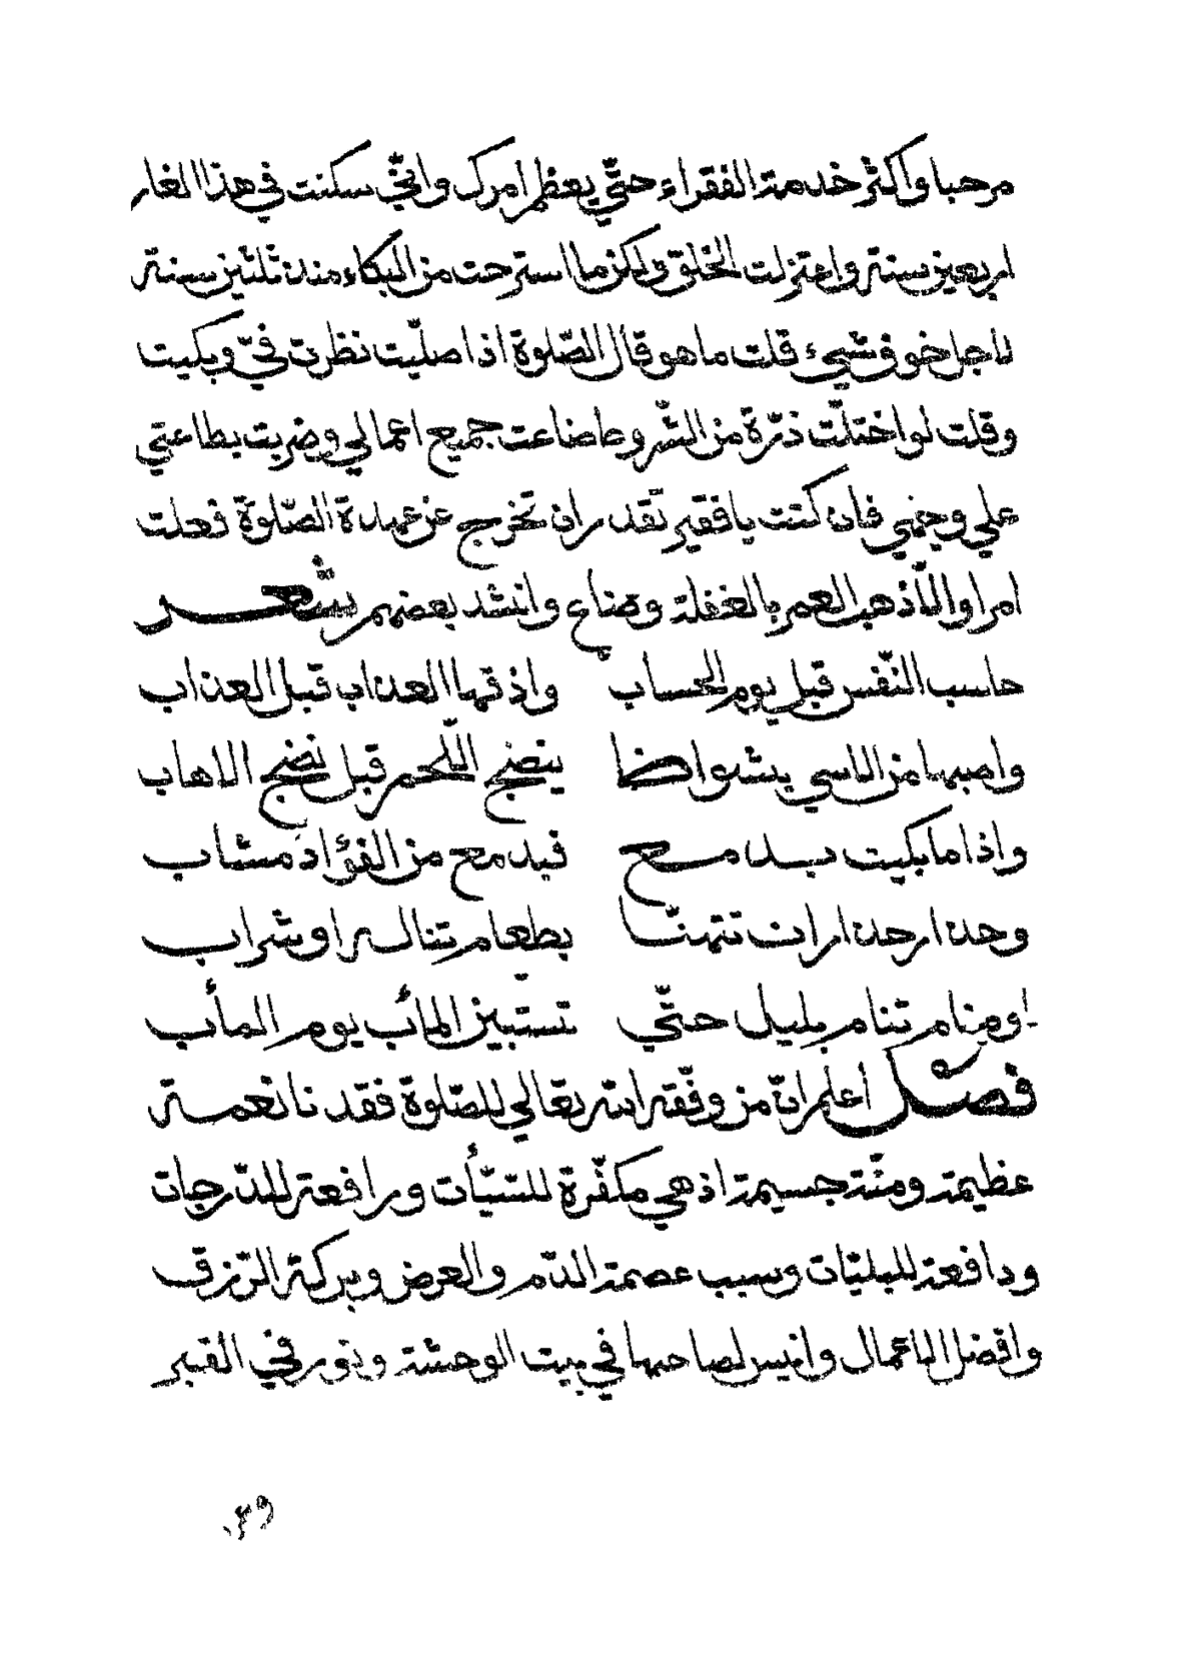 مرحبا واكثر خدمة الفقراء حتّي يعظم امرك وانّي سكنت في هذا الغار
اربعين سنة واعتزلت الخلق ولكن ما استرحت من البكاء منذ ثلثين سنة
لاجل خوف شيء قلت ما هو قال الصّلوة اذا صليّت نظرت فيّ وبكيت
وقلت لو اختلّت ذرّة من الشّروط ضاعت جميع اعمالي وضربت بطاعتي
علي وجهي فان كنت يا فقير تقدر ان تخرج عن عهدة الصّلوة فعلت
امرا والّا ذهب العمر بالغفلة وضاع وانشد بعضهم شعر
حاسب النّفس قبل يوم الحساب واذقها العذاب قبل العذاب
واصبها من الاسي بشواظ ينضج اللّحم قبل نضج الاهاب
واذا ما بكيت بدمع فبدمع من الفؤاد مشاب
وحذار حذار ان تتهنّا بطعام تناله او شراب
او منام تنام بليل حتّي تستبين المأب يوم المأب
فصل أعلم انّ من وفّقه الله تعالي للصّلوة فقد نا نعمة
عظيمة ومنّة جسيمة اذ هي مكفّرة للسّيّأت ورافعة للدّرجات
ودافعة للبليّات وسبب عصمة الدّم والعرض وبركة الرّزق
وافضل الاعمال وانيس لصاحبها في بيت الوحشة ونور في القبر